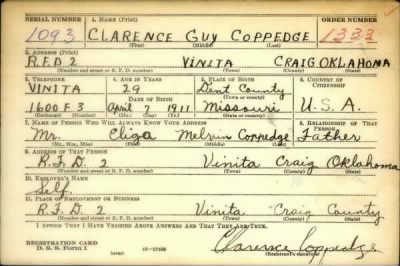 SERIAL NUMBER 1. NAME (Print) ORDER NUMBER
1093 CLARENCE GUY COPPEDGE 1333
(First) (Middle) (Last)
2. ADDRESS (Print)
R.F.D. 2 VINITA CRAIG OKLAHOMA
(Number and street or R. F. D. number) (Town) (County) (State)
3. TELEPHONE 4. AGE IN YEARS 5. PLACE OF BIRTH 6. COUNTRY OF CITIZENSHIP
VINITA 29 Dent County
DATE OF BIRTH (Town or county)
1600 F 3 April 7 1911 Missouri U.S.A.
(Exchange) (Number) (Mo.) (Day) (Yr.) (State or country)
7. NAME OF PERSON WHO WILL ALWAYS KNOW YOUR ADDRESS 8. RELATIONSHIP OF THAT PERSON
Mr. Eliga Melvin Coppedge Father
(Mr., Mrs., Miss) (First) (Middle) (Last)
9. ADDRESS OF THAT PERSON
R.F.D. 2 Vinita Craig Oklahoma
(Number and street or R. F. D. number) (Town) (County) (State)
10. EMPLOYER'S NAME
Self.
11. PLACE OF EMPLOYMENT OR BUSINESS
R.F.D. 2 Vinita Craig County
(Number and street or R. F. D. number) (Town) (County) (State)
I AFFIRM THAT I HAVE VERIFIED ABOVE ANSWERS AND THAT THEY ARE TRUE.
REGISTRATION CARD
D. S. S. Form 1 (over) Clarence Coppedge
(Registrant's signature)